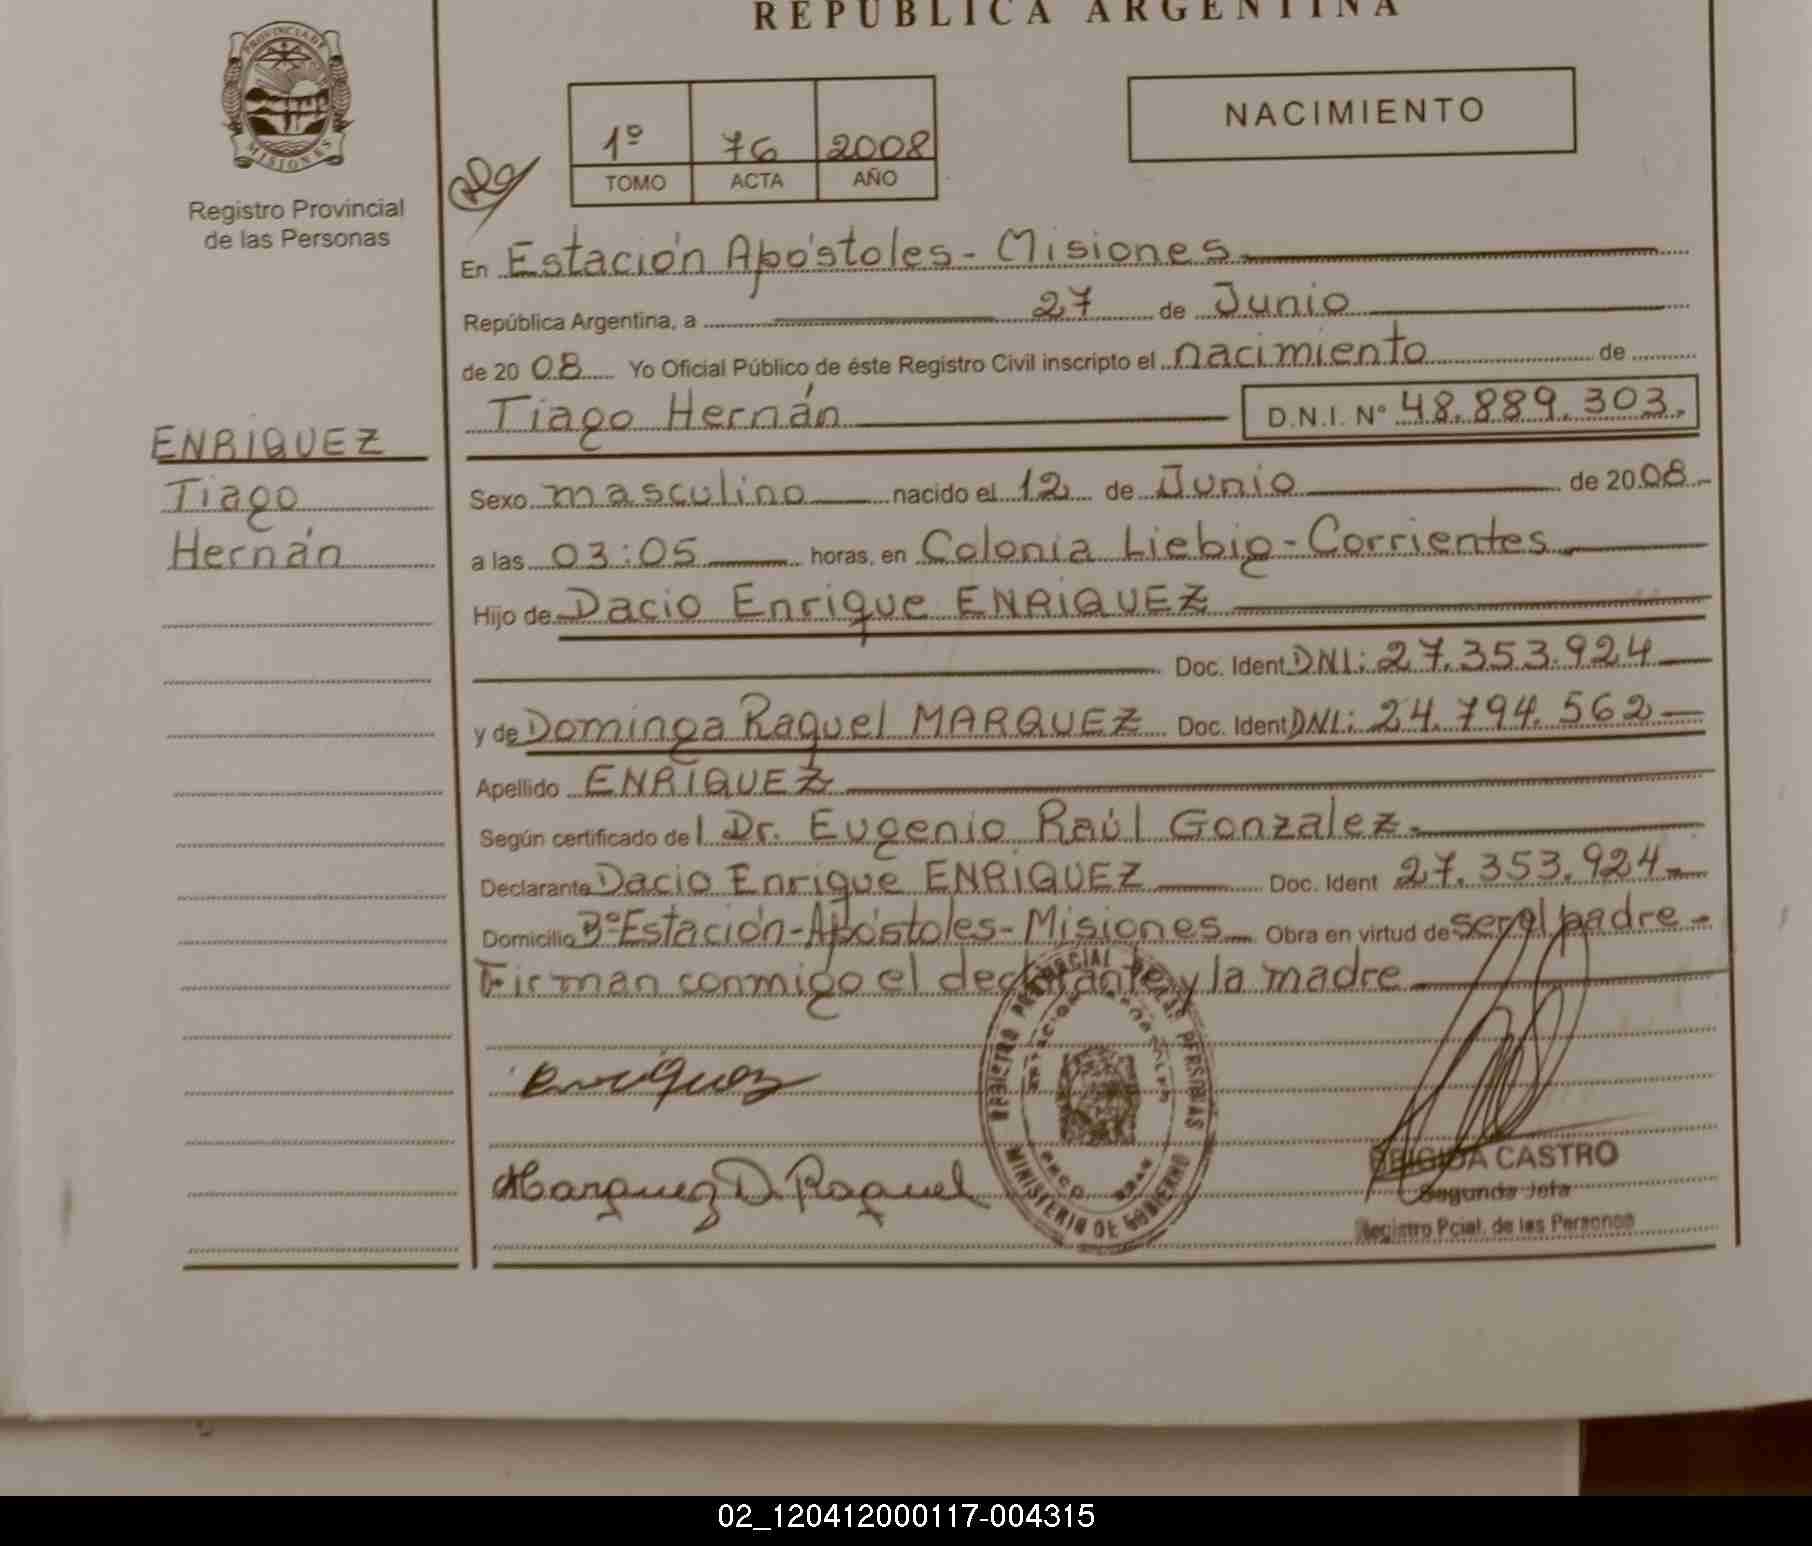 REPUBLICA ARGENTINA
PROVINCIA DE
MISIONES
Registro Provincial
de las Personas
1º 76 2008
TOMO ACTA AÑO
NACIMIENTO
En Estación Apóstoles - Misiones
República Argentina, a 27 de Junio
de 2008 Yo Oficial Público de éste Registro Civil inscripto el nacimiento de
Tiago Hernán D.N.I. Nº 48.889.303.
ENRIQUEZ
Tiago
Hernán
Sexo masculino nacido el 12 de Junio de 2008
a las 03:05 horas, en Colonia Liebig - Corrientes
Hijo de Dacio Enrique ENRIQUEZ
Doc. Ident DNI: 27.353.924
y de Dominga Raquel MARQUEZ Doc. Ident DNI: 24.794.562
Apellido ENRIQUEZ
Según certificado del Dr. Eugenio Raúl Gonzalez.
Declarante Dacio Enrique ENRIQUEZ Doc. Ident 27.353.924
Domicilio Bº Estación - Apóstoles - Misiones Obra en virtud de ser el padre
Firman conmigo el declarante y la madre
Enriquez
Marquez D. Raquel
REGISTRO PROVINCIAL DE LAS PERSONAS
MINISTERIO DE GOBIERNO
BRIGIDA CASTRO
Segunda Jefa
Registro Pcial. de las Personas
02_120412000117-004315